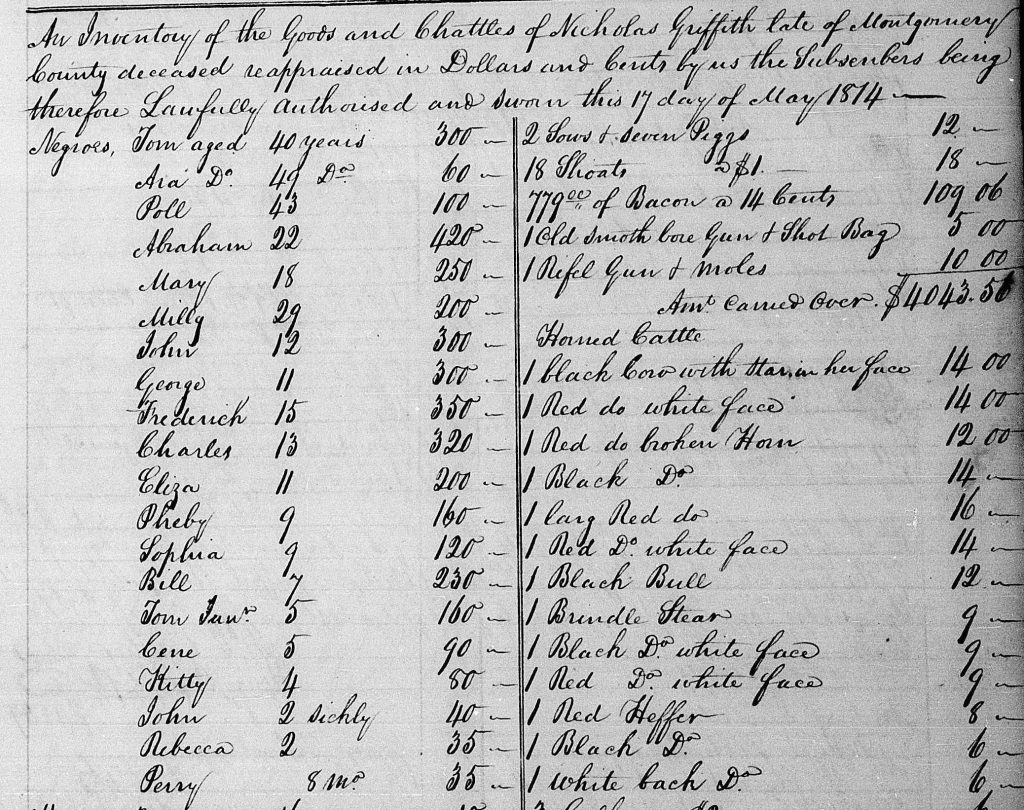 An Inventory of the Goods and Chattles of Nicholas Griffith late of Montgomery
County deceased reappraised in Dollars and Cents by us the Subscribers being
therefore Lawfully Authorised and sworn this 17 day of May 1814
Negroes, Tom aged 40 years 300
Ara Do. 49 Do. 60
Poll 43 100
Abraham 22 420
Mary 18 250
Milly 29 200
John 12 300
George 11 300
Frederick 15 350
Charles 13 320
Eliza 11 200
Pheby 9 160
Sophia 9 120
Bill 7 230
Tom Junr. 5 160
Cene 5 90
Kitty 4 80
John 2 sickly 40
Rebecca 2 35
Perry 8 mo. 35
2 Sows & seven Piggs 12
18 Shoats a $1. 18
779 of Bacon a 14 Cents 109 06
1 Old smoth bore Gun & Shot Bag 5 00
1 Rifel Gun & moles 10 00
Amt. carried Over. $4043.56
Horned Cattle
1 black Cow with star in her face 14 00
1 Red do white face 14 00
1 Red do broken Horn 12 00
1 Black Do. 14
1 larg Red do 16
1 Red Do. white face 14
1 Black Bull 12
1 Brindle Stear 9
1 Black Do. white face 9
1 Red Do. white face 9
1 Red Heffer 8
1 Black Do. 6
1 white back Do. 6